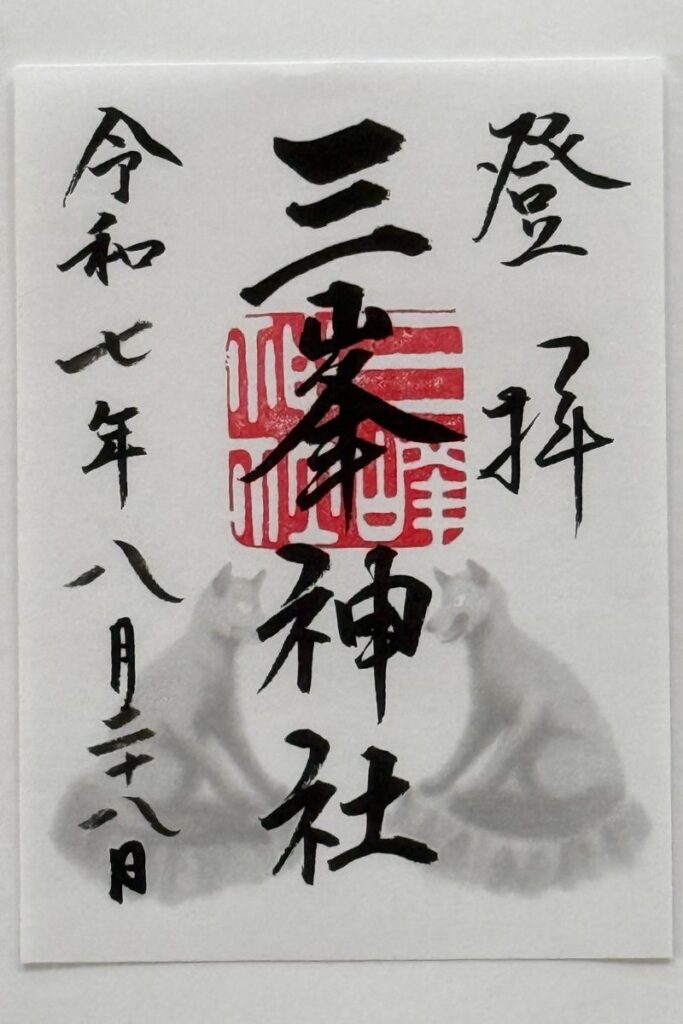 登拝
三峯神社
三峰神社
令和七年八月二十八日